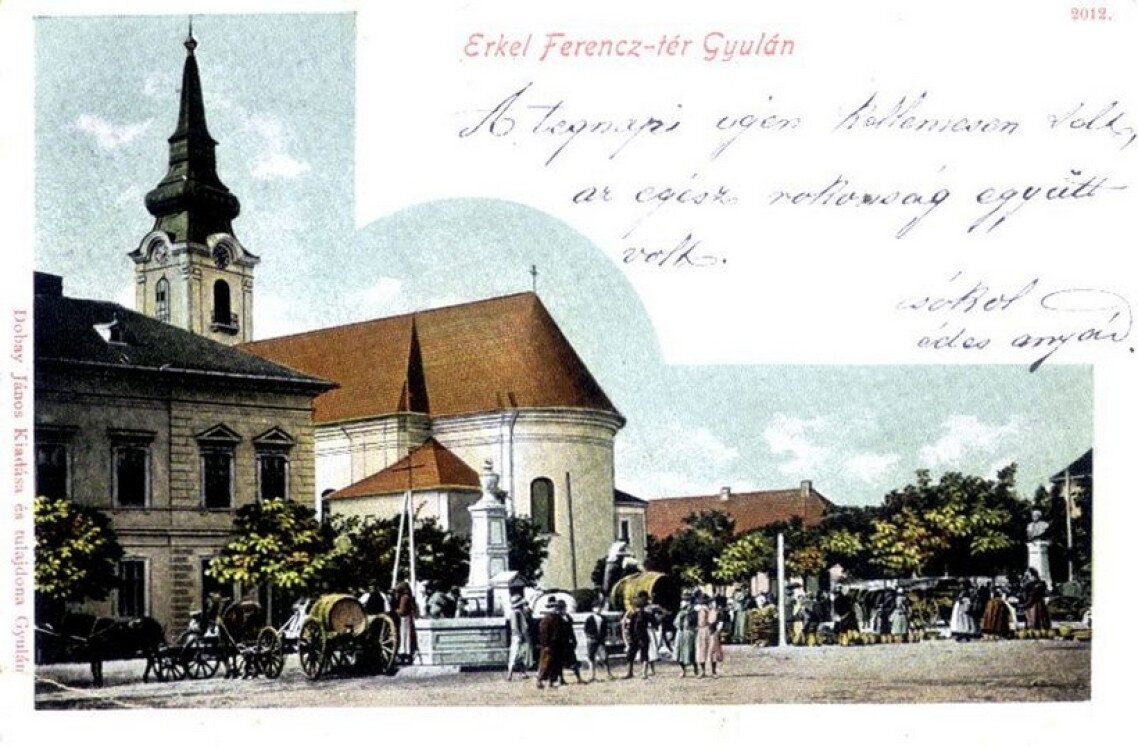 2012.
Erkel Ferencz-tér Gyulán
A tegnapi igen kellemesen volt,
az egész rokonság együtt
volt.
csókol
édes anyád.
Dobay János Kiadása és tulajdona Gyulán